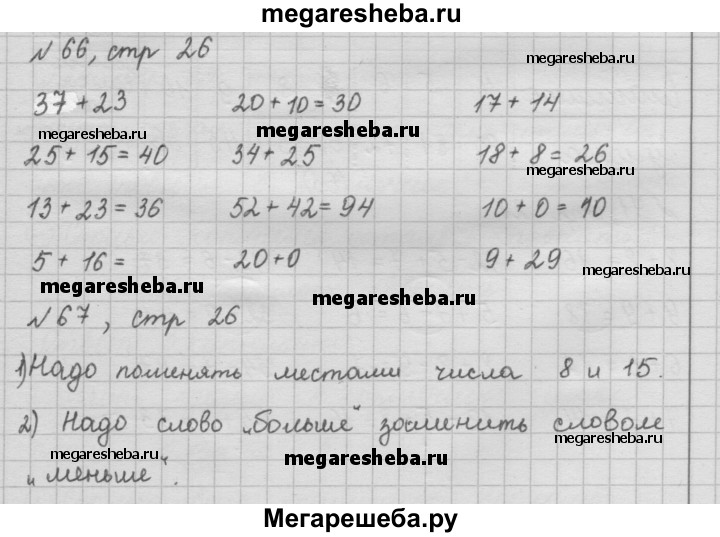 megaresheba.ru
№ 66, стр 26
megaresheba.ru
37 + 23 20 + 10 = 30 17 + 14
megaresheba.ru megaresheba.ru
25 + 15 = 40 34 + 25 18 + 8 = 26
megaresheba.ru
13 + 23 = 36 52 + 42 = 94 10 + 0 = 10
5 + 16 = 20 + 0 9 + 29
megaresheba.ru
megaresheba.ru megaresheba.ru
№ 67, стр 26
1) Надо поменять местами числа 8 и 15.
2) Надо слово „больше“ заменить словом
megaresheba.ru megaresheba.ru megaresheba.ru
„меньше“.
Мегарешеба.ру